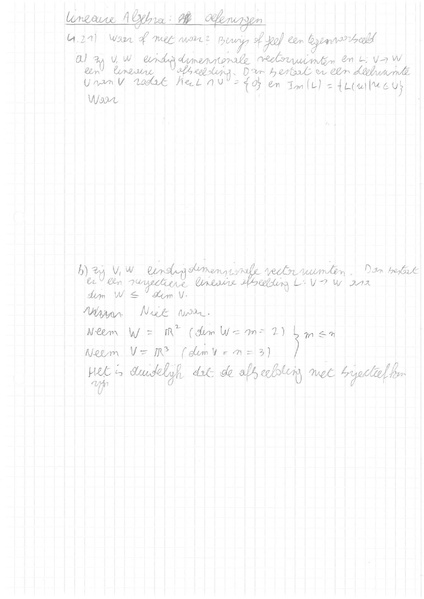 Lineaire Algebra: oefeningen
4.21) Waar of niet waar? Bewijs of geef een tegenvoorbeeld
a) Zij V, W eindigdimensionale vectorruimten en L: V → W
een lineaire afbeelding. Dan bestaat er een deelruimte
U van V zodat Ker L ∩ U = {0} en Im(L) = {L(u)|u ∈ U}
Waar
b) Zij V, W eindigdimensionale vectorruimten. Dan bestaat
er een surjectieve lineaire afbeelding L: V → W asa
dim W ≤ dim V.
Niet waar.
Neem W = ℝ² (dim W = m = 2) } m ≤ n
Neem V = ℝ³ (dim V = n = 3)
Het is duidelijk dat de afbeelding niet bijectief kan
zijn